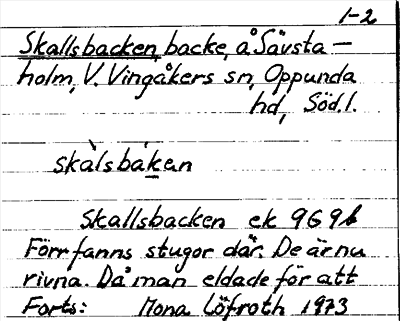 1-2
Skallsbacken, backe, å Sävsta-
holm, V. Vingåkers sn, Oppunda
hd, Söd.l.
skàlsbák̲en
Skallsbacken ek 969b
Förr fanns stugor där. De är nu
rivna. Då man eldade för att
Forts: Mona Löfroth 1973